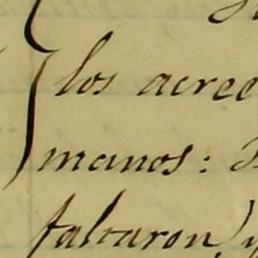 los acree
manos:
faltaron, y